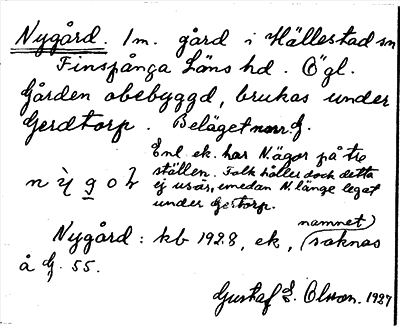 Nygård. 1 m. gård i Hällestad sn
Finspånga Läns hd. Ögl.
Gården obebyggd, brukas under
Gerdtorp. Beläget norr G.
Enl. ek. har N. ägor på tre
ställen. Folk håller doch detta
ej usär, umedan N. länge legat
under Gertorp.
Nygård: kb 1928, ek, (namnet) saknas
å G. 55.
Gustaf E. Olsson. 1927